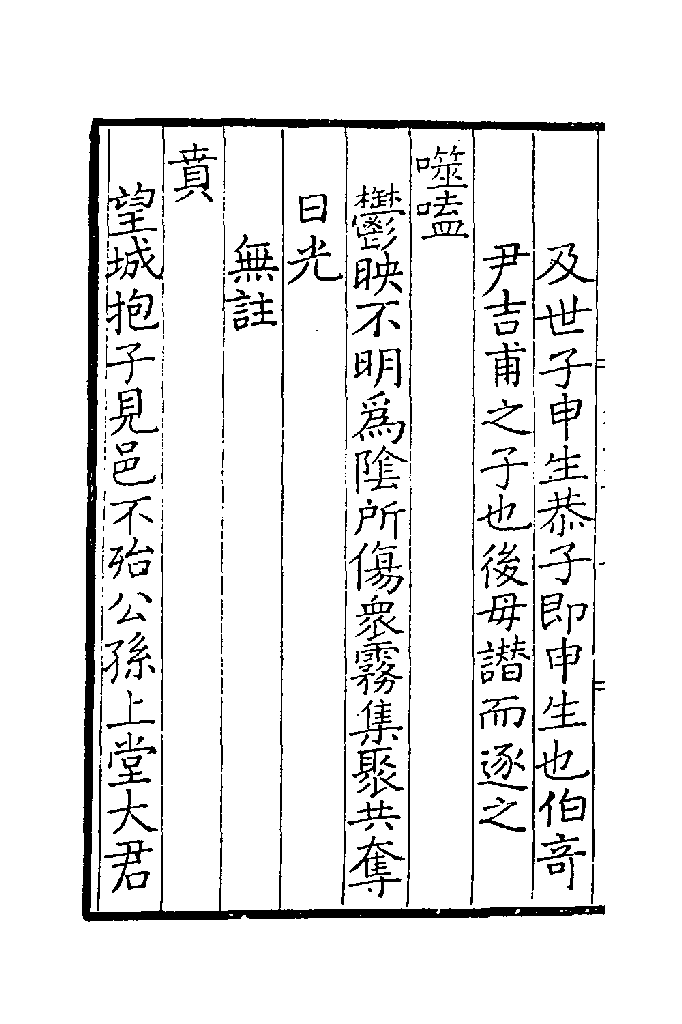 及世子申生恭子即申生也伯竒
尹吉甫之子也後母譖而逐之
噬嗑
鬱映不明為陰所傷衆霧集聚共奪
日光
無註
賁
望城抱子見邑不殆公孫上堂大君